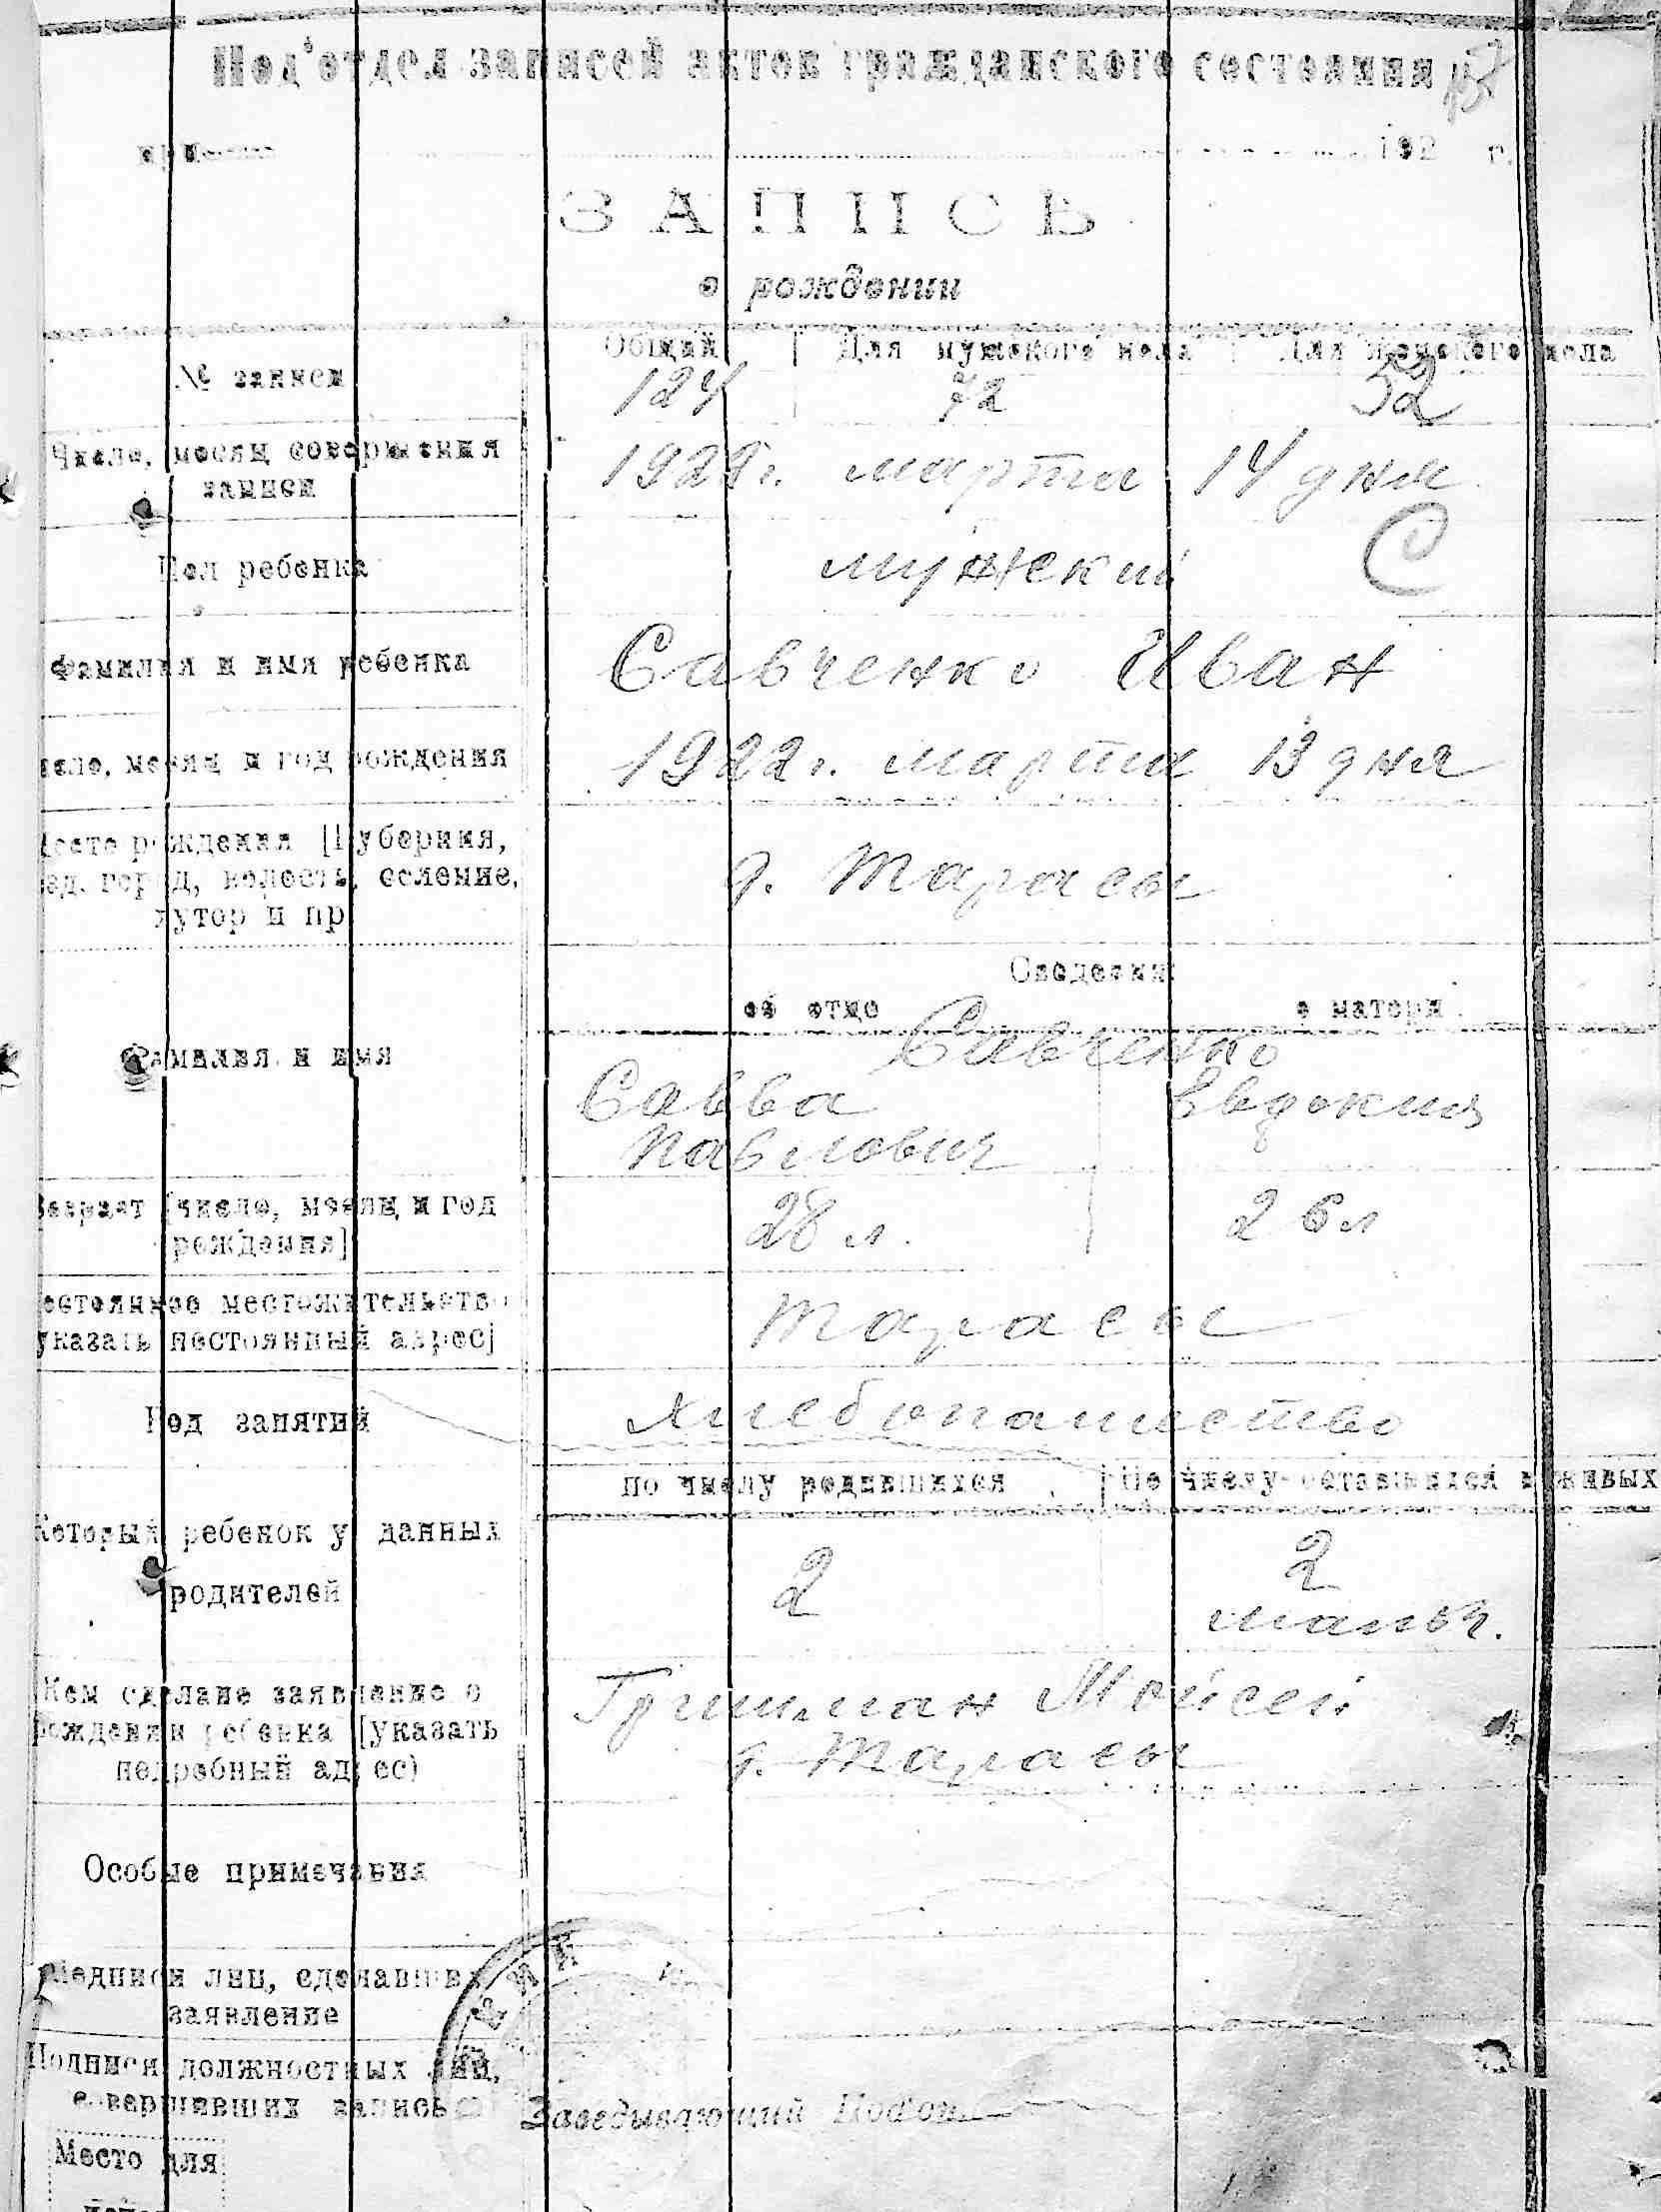 Под'отдел записей актов гражданского состояния
при 192 г.
ЗАПИСЬ
о рождении
Общий Для мужского пола Для женского пола
№ записи 124 72 52
Число, месяц совершения записи 1922 г. марта 14 дня
Пол ребенка мужский С
Фамилия и имя ребенка Савченко Иван
число, месяц и год рождения 1922 г. марта 13 дня
Место рождения [Губерния,
уезд, город, волость, селение, д. Тарасы
хутор и пр
Сведения
об отце о матери
Савченко
Фамилия и имя
Савва Евдокия
Павлович
Возраст [число, месяц и год 28 л. 26 л
рождения]
Постоянное местожительство Тарасы
указать постоянный адрес]
Род занятий хлебопашество
по числу родившихся По числу оставшихся в живых
Который ребенок у данных
родителей 2 2
мальч.
Кем сделано заявление о Гришман Мойсей
рождении ребенка [указать
подробный адрес) д. Тарасы
Особые примечания
Подписи лиц, сделавших
заявление
Подписи должностных лиц,
совершивших запись Заведывающий Под'от
Место для